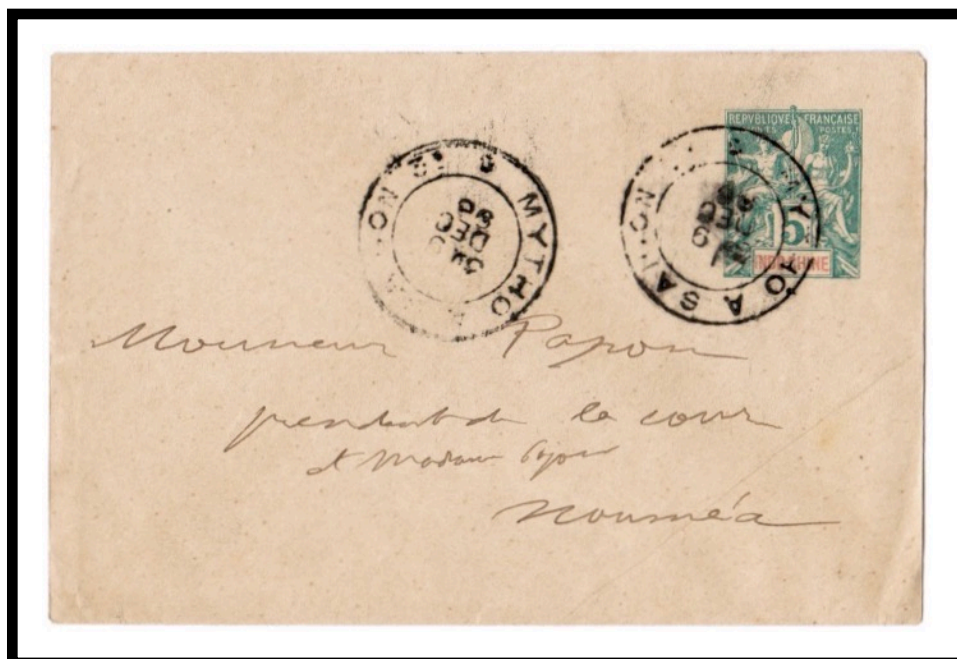 REPVBLIQUE FRANÇAISE
POSTES
5
INDOCHINE
MYTHO A SAIGON
DEC
MYTHO A SAIGON
DEC
Monsieur Papon
president de la cour
et Madame Papon
Nouméa